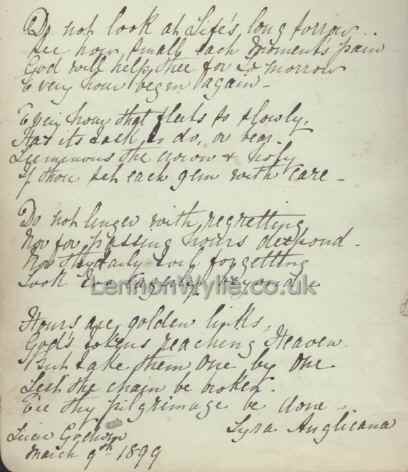 Do not look at Life's, long sorrow..
See how small each moments pain
God will help thee for to morrow
Every hour begin again -
Every hour that fleets so slowly.
Has its task to do, or bear.
Luminous the crown & holy
If thou set each gem with care -
Do not linger with regretting
Nor for passing hours despond -
Nor thy daily toil forgetting
Look
LennonWylie.co.uk
Hours are golden links,
God's tokens reaching Heaven
But take them one by one
Lest the chain be broken.
Ere thy pilgrimage be done -
Lyra Anglicana
March 9th 1899